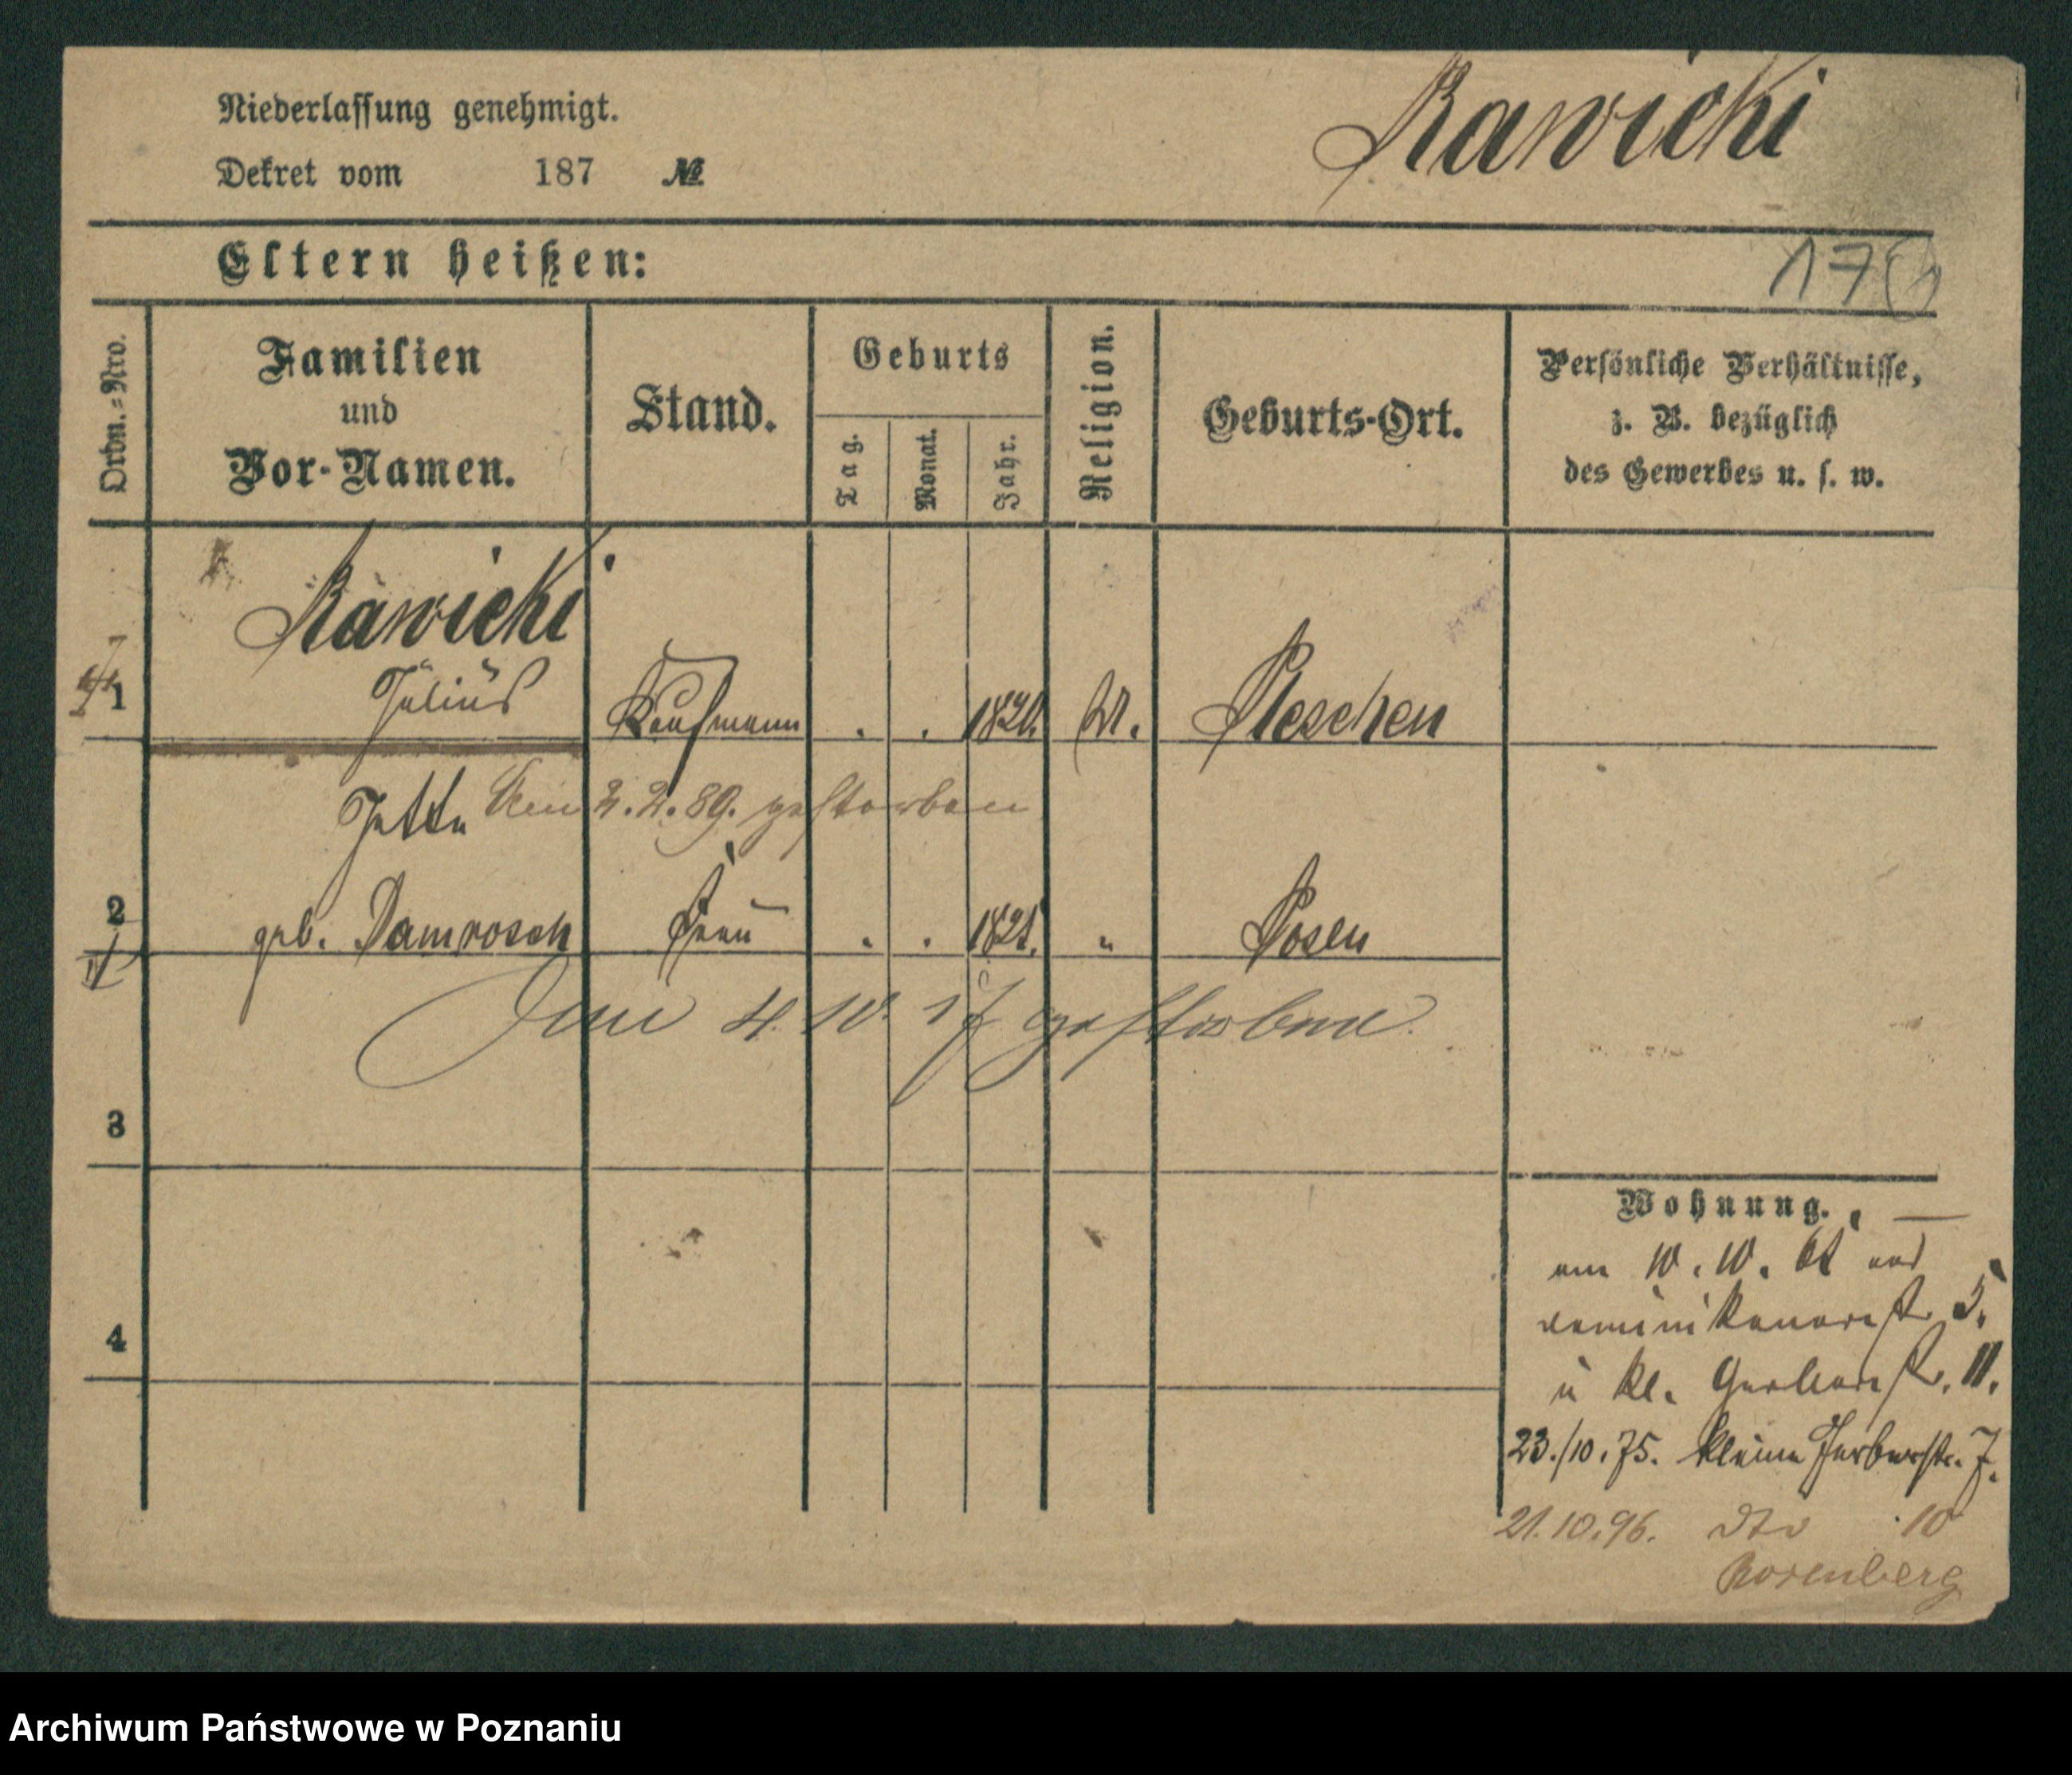 Niederlassung genehmigt.
Rawicki
Dekret vom 187 №
Eltern heißen:
17
Ordn.=Nro.
Familien
und
Vor-Namen.
Stand.
Geburts
Tag.
Monat.
Jahr.
Religion.
Geburts-Ort.
Persönliche Verhältnisse,
z. B. bezüglich
des Gewerbes u. s. w.
Rawicki
1 Julius Kaufmann . . Pleschen
Jette
2.2.89. gestorben
2 geb. Damrosch Frau . . " Posen
4. 10. gestorben.
3
4
Wohnung.
am 10. 10.
Dominikanerstr. 5.
u kl. Gerberstr. 11.
23./10.75. kleine Gerberstr. 7.
21.10.96. dto 10
Rosenberg
Archiwum Państwowe w Poznaniu